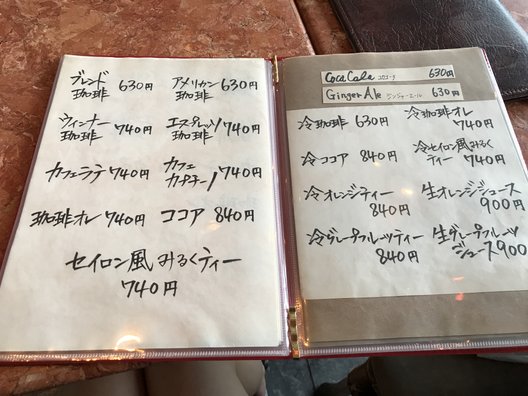 ブレンド珈琲 630円 アメリカン珈琲 630円
ウィンナー珈琲 740円 エスプレッソ珈琲 740円
カフェラテ 740円 カフェカプチーノ 740円
珈琲オレ 740円 ココア 840円
セイロン風みるくティー
740円
Coca Cola コカコーラ 630円
Ginger Ale ジンジャーエール 630円
冷珈琲 630円 冷珈琲オレ 740円
冷ココア 840円 冷セイロン風みるくティー 740円
冷オレンジティー 840円 生オレンジジュース 900円
冷グレープフルーツティー 840円 生グレープフルーツジュース 900